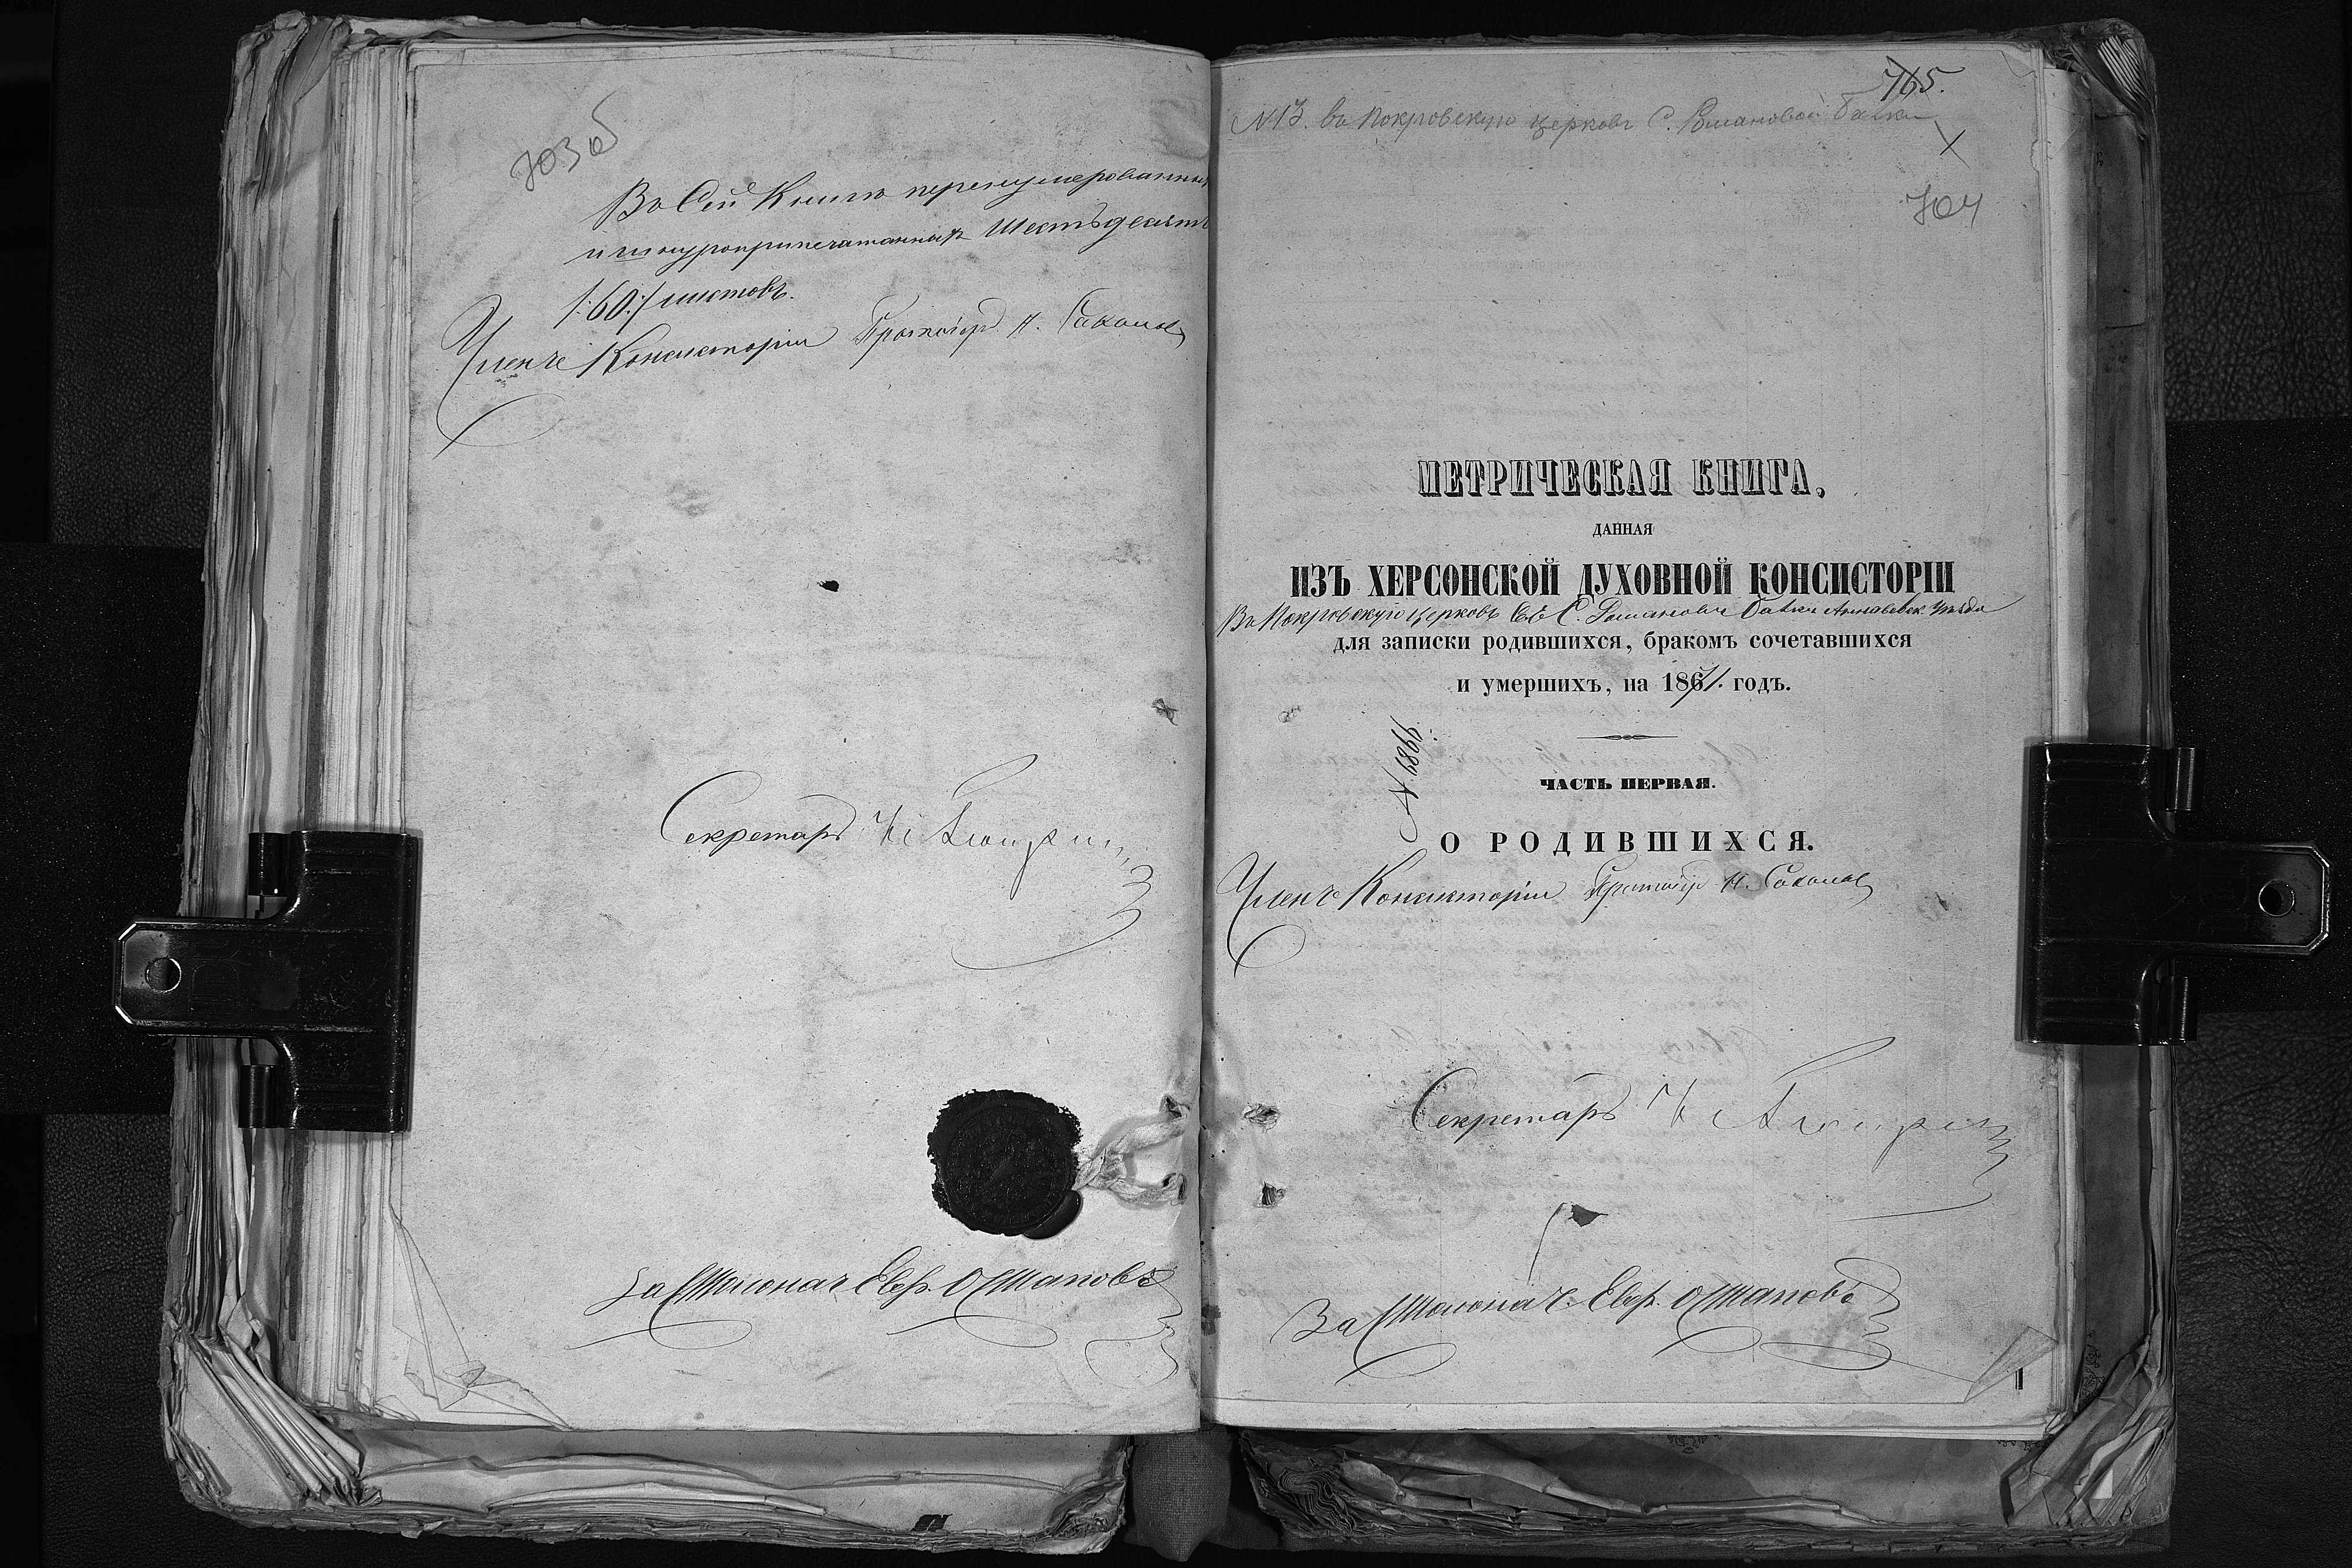 703 об
Въ Сей Книгѣ перенумерованныхъ
и шнуроприпечатанныхъ Шестьдесятъ
/:60:/ листовъ.
Членъ Консисторіи Протоіерей Н. Соколов
Секретарь
За Столонач. Евф. Остаповъ
765.
№ 13. въ Покровскую церковь С. Романовой Балки
704
МЕТРИЧЕСКАЯ КНИГА,
ДАННАЯ
ИЗЪ ХЕРСОНСКОЙ ДУХОВНОЙ КОНСИСТОРІИ
Въ Покровскую церковь С. Романовой Балки Ананьевск. уѣзда
для записки родившихся, бракомъ сочетавшихся
и умершихъ, на 1871. годъ.
ЧАСТЬ ПЕРВАЯ.
О РОДИВШИХСЯ.
Членъ Консисторіи Протоіерей Н. Соколов
Секретарь
За Столонач. Евф. Остаповъ
1